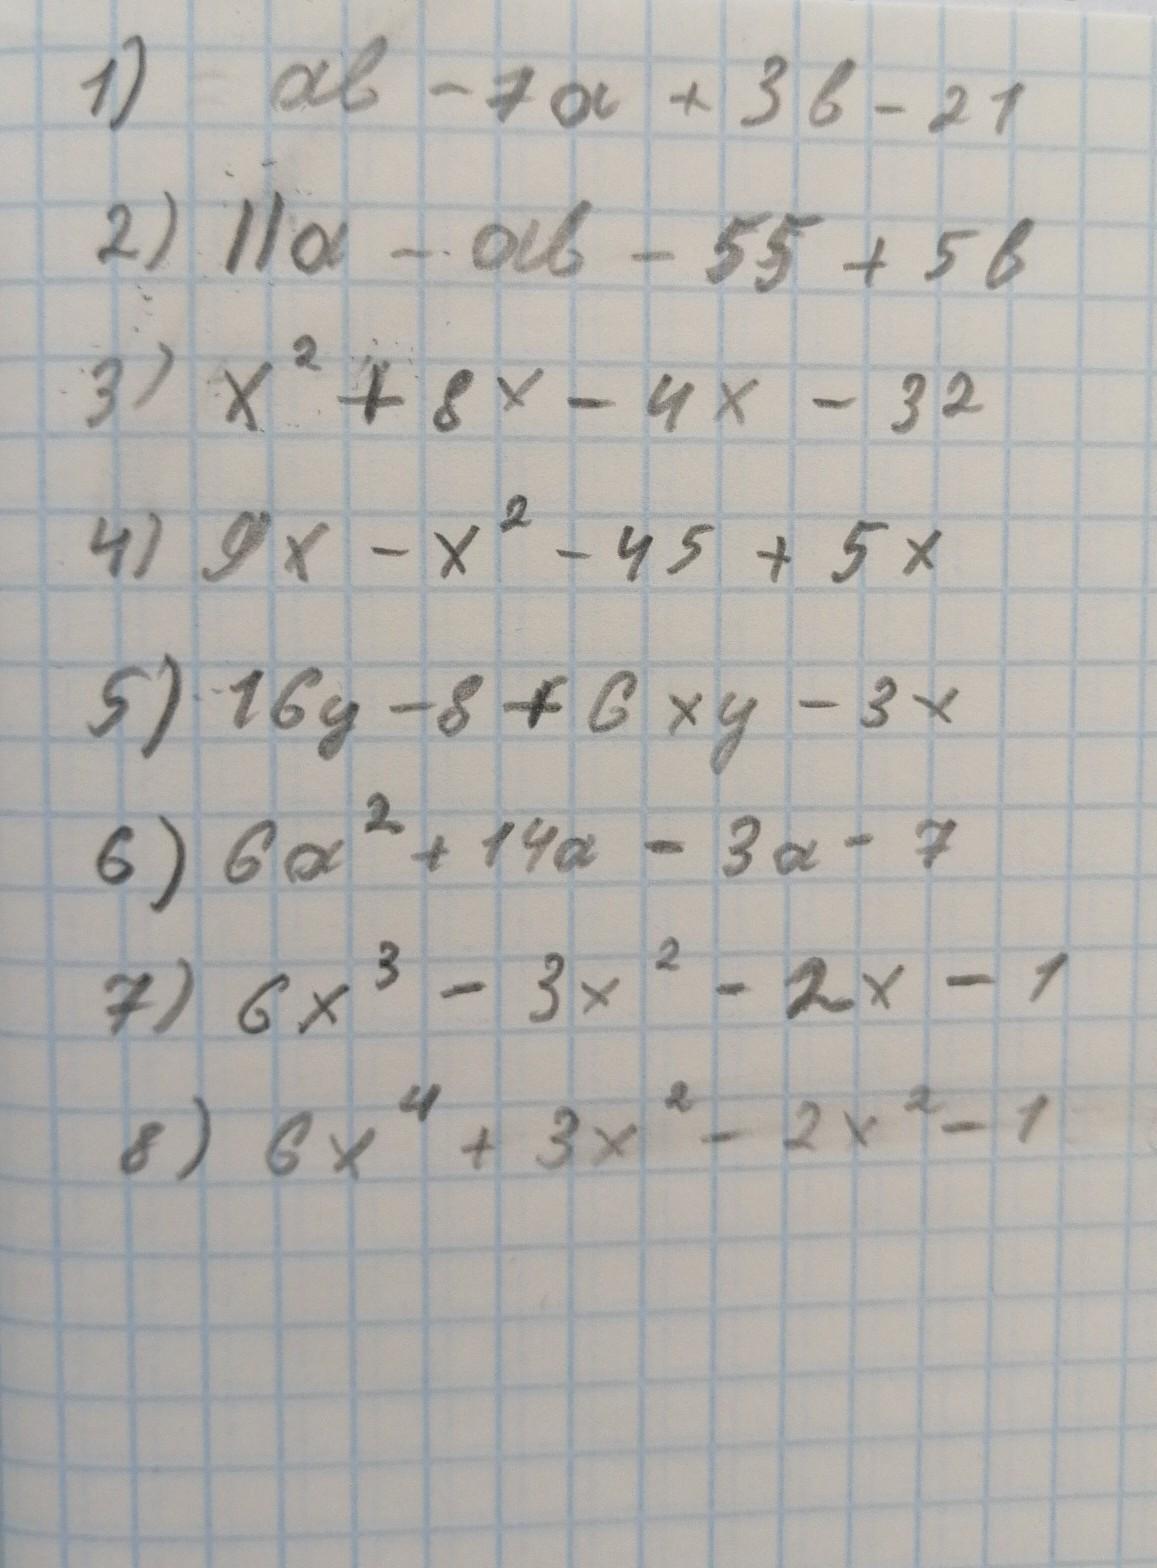 1) ab - 7a + 3b - 21
2) 11a - ab - 55 + 5b
3) x² + 8x - 4x - 32
4) 9x - x² - 45 + 5x
5) 16y - 8 + 6xy - 3x
6) 6a² + 14a - 3a - 7
7) 6x³ - 3x² - 2x - 1
8) 6x⁴ + 3x² - 2x² - 1